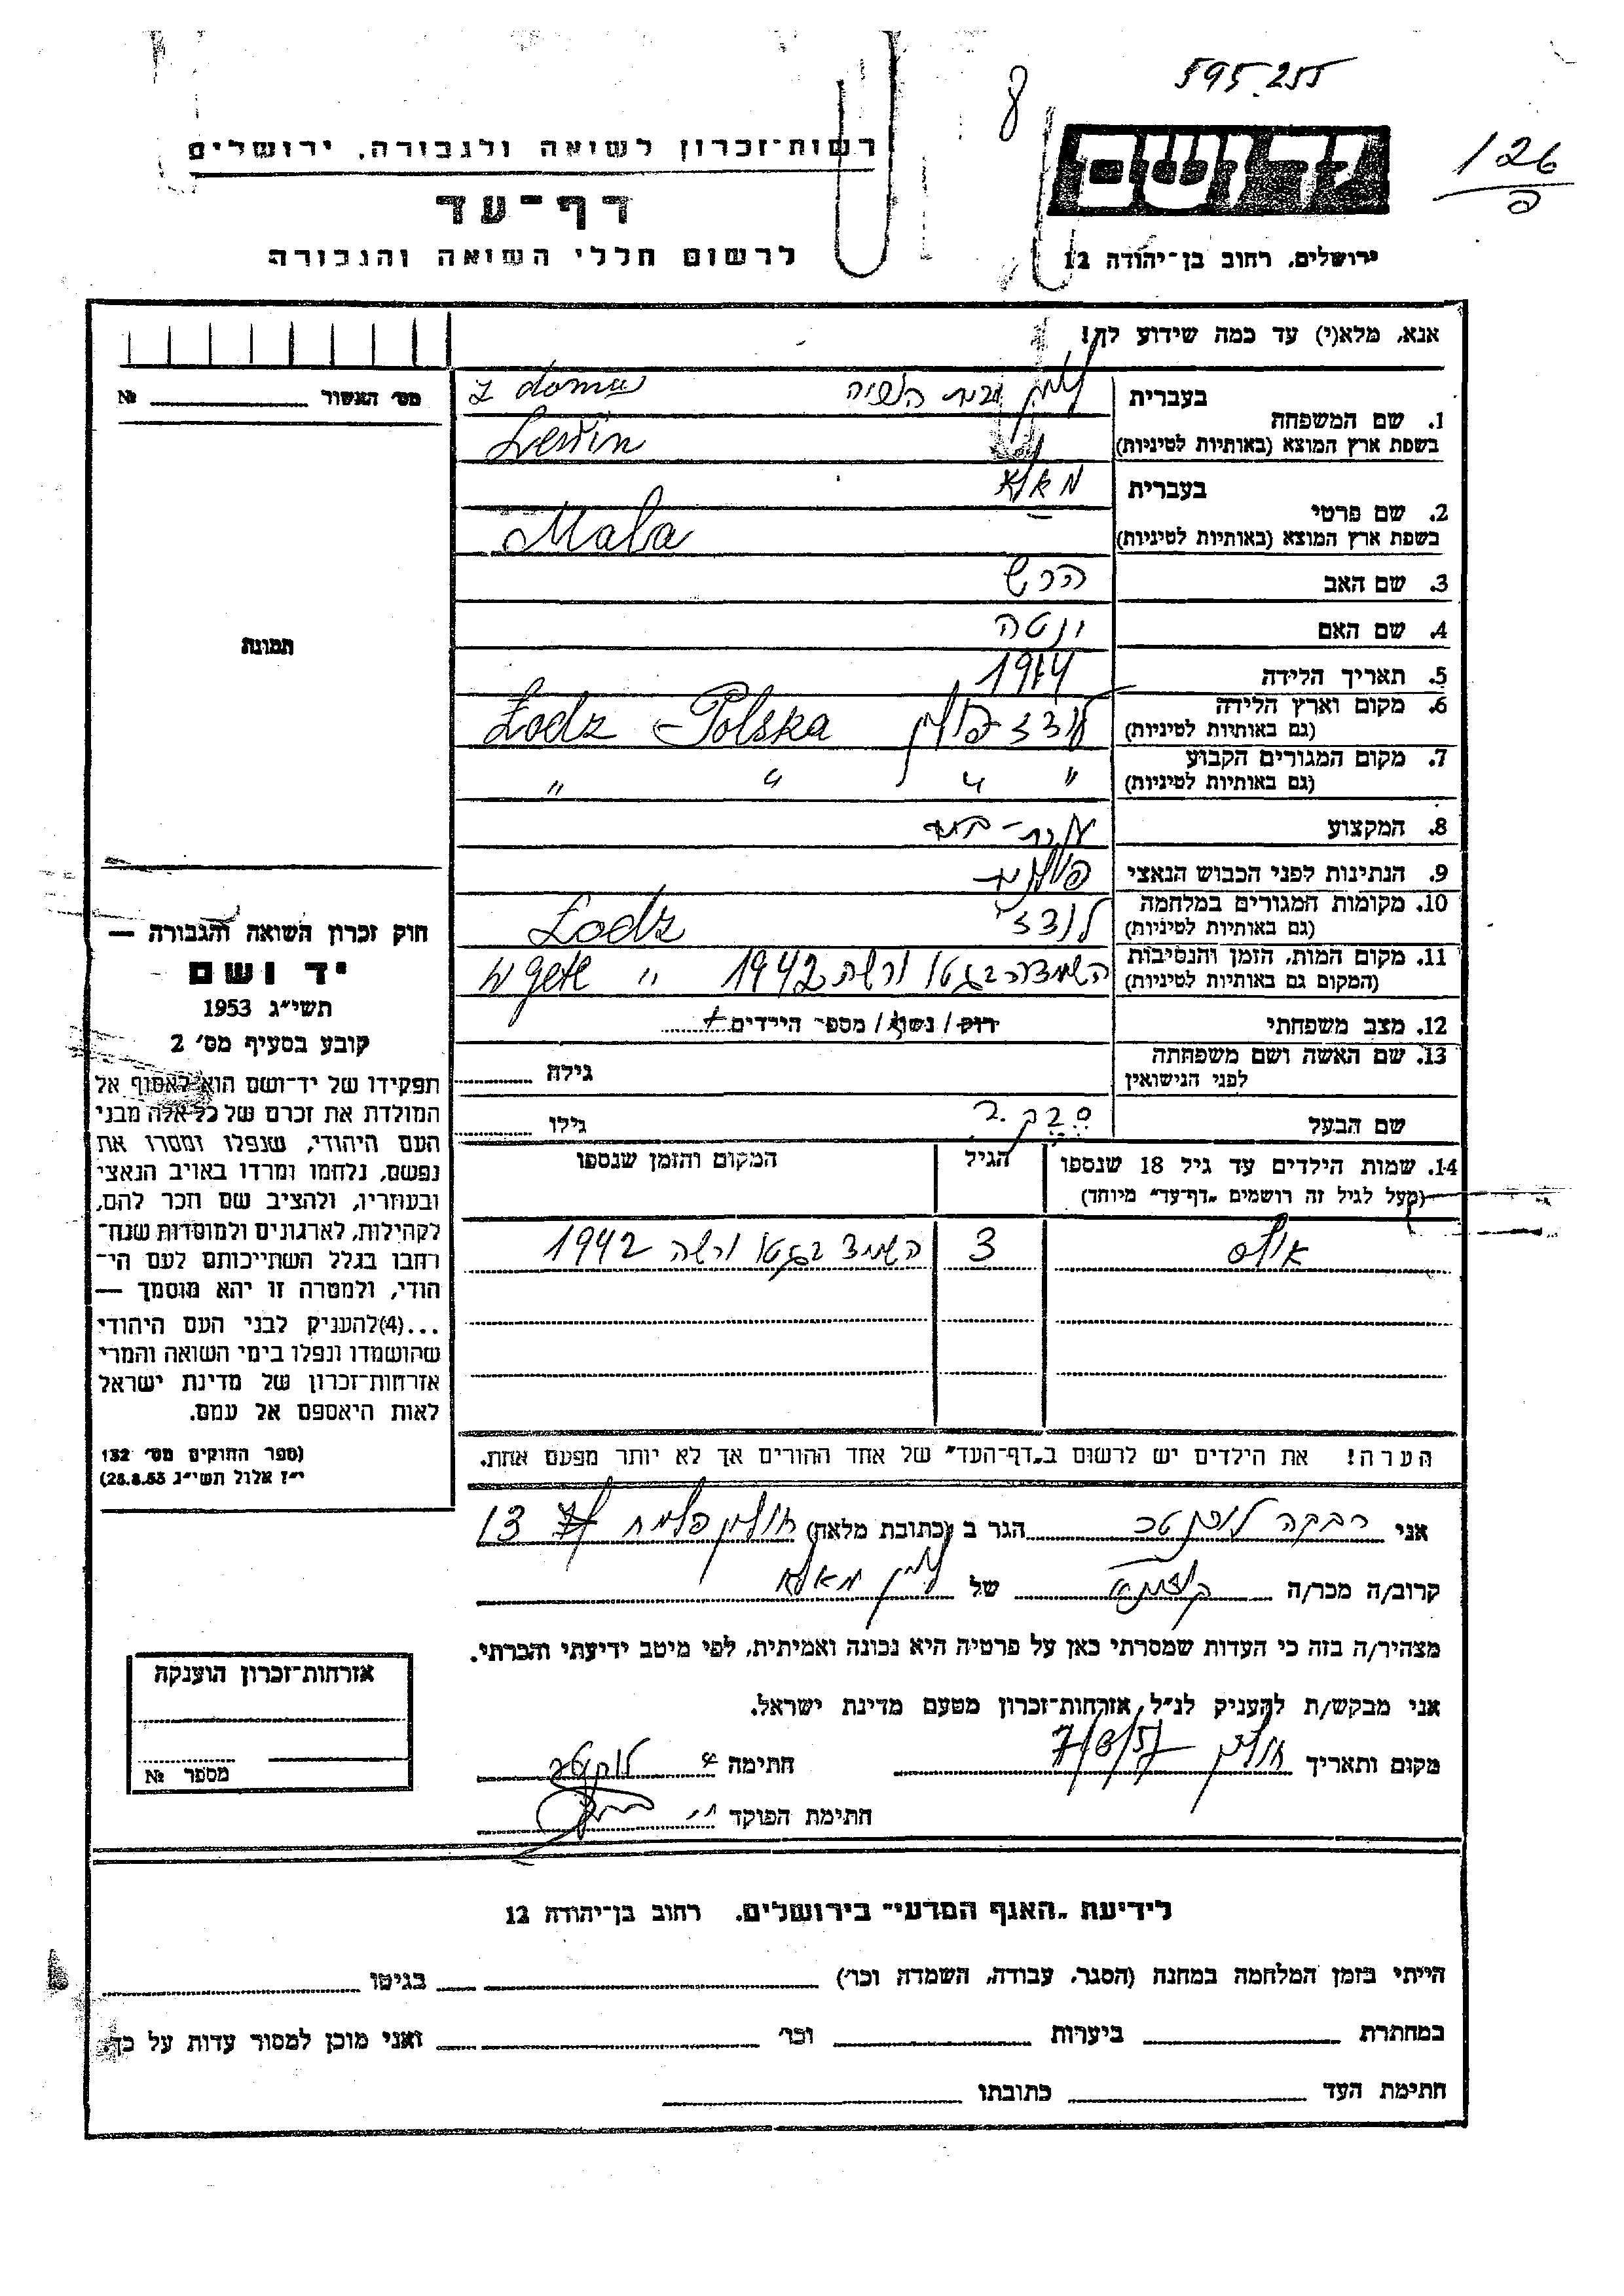 595.255
8
126
רשות־זכרון לשואה ולגבורה, ירושלים
דף־עד
לרשום חללי השואה והגבורה
יד ושם
ירושלים, רחוב בן־יהודה 12
אנא, מלא(י) עד כמה שידוע לך!
מס׳ האשור № 
1. שם המשפחה
בעברית לוין
z domu
בשפת ארץ המוצא (באותיות לטיניות) Lewin
2. שם פרטי
בעברית מאלא
בשפת ארץ המוצא (באותיות לטיניות) Mala
3. שם האב הרש
4. שם האם ינטה
5. תאריך הלידה 1914
6. מקום וארץ הלידה לודז פולין Łodz Polska
(גם באותיות לטיניות)
7. מקום המגורים הקבוע " " " "
(גם באותיות לטיניות)
8. המקצוע עקרת-בית
9. הנתינות לפני הכבוש הנאצי פולנית
10. מקומות המגורים במלחמה לודז Łodz
(גם באותיות לטיניות)
11. מקום המות, הזמן והנסיבות בגטו ורשה 1942 " w getc
(המקום גם באותיות לטיניות)
12. מצב משפחתי רווק / נשוי / מספר הילדים
13. שם האשה ושם משפחתה
לפני הנישואין
גילה
שם הבעל
גילו
14. שמות הילדים עד גיל 18 שנספו
(מעל לגיל זה רושמים „דף־עד" מיוחד)
הגיל
המקום והזמן שנספו
3 בגטו ורשה 1942
הערה! את הילדים יש לרשום ב„דף־העד" של אחד ההורים אך לא יותר מפעם אחת.
תמונה
חוק זכרון השואה והגבורה —
יד ושם
תשי״ג 1953
קובע בסעיף מס׳ 2
תפקידו של יד־ושם הוא לאסוף אל
המולדת את זכרם של כל אלה מבני
העם היהודי, שנפלו ומסרו את
נפשם, נלחמו ומרדו באויב הנאצי
ובעוזריו, ולהציב שם וזכר להם,
לקהילות, לארגונים ולמוסדות שנח־
רחבו בגלל השתייכותם לעם הי־
הודי, ולמטרה זו יהא מוסמך —
...(4) להעניק לבני העם היהודי
שהושמדו ונפלו בימי השואה והמרי
אזרחות־זכרון של מדינת ישראל
לאות היאספם אל עמם.
(ספר החוקים מס׳ 132
י״ז אלול תשי״ג 28.8.53)
אני רבקה הגר ב (כתובת מלאה) חולון 13
קרוב/ה מכר/ה של לוין מאלא
מצהיר/ה בזה כי העדות שמסרתי כאן על פרטיה היא נכונה ואמיתית, לפי מיטב ידיעתי והכרתי.
אני מבקש/ת להעניק לנ״ל אזרחות־זכרון מטעם מדינת ישראל.
מקום ותאריך חולון 7/8/57 חתימה
חתימת הפוקד
אזרחות־זכרון הוענקה
מספר №
לידיעת „האגף המדעי" בירושלים, רחוב בן־יהודה 12
הייתי בזמן המלחמה במחנה (הסגר, עבודה, השמדה וכו׳) בגיטו
במחתרת ביערות וכו׳ ואני מוכן למסור עדות על כך.
חתימת העד כתובתו